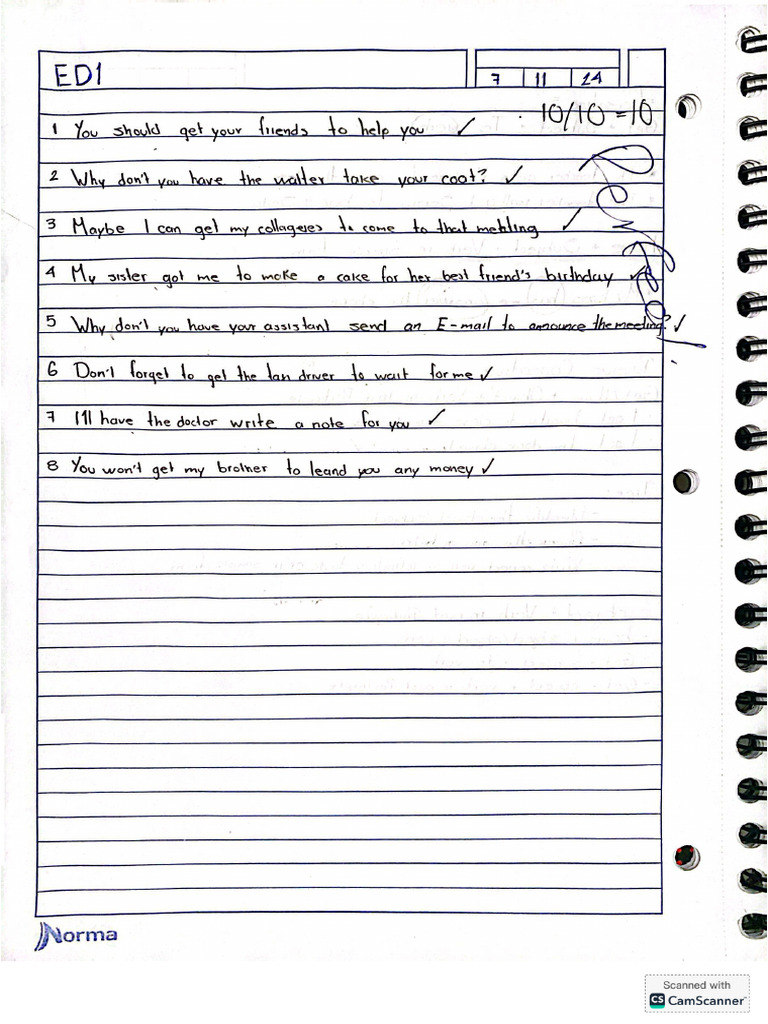 ED1
7 11 24
10/10 = 10
1 You should get your friends to help you ✓
2 Why don't you have the waiter take your coat? ✓
3 Maybe I can get my collageres to come to that mehting ✓
4 My sister got me to make a cake for her best friend's birthday ✓
5 Why don't you have your assistant send an E-mail to anounce the meeting? ✓
6 Don't forget to get the tan driver to wait for me ✓
7 I'll have the doctor write a note for you ✓
8 You won't get my brother to leand you any money ✓
Norma
Scanned with
CS CamScanner